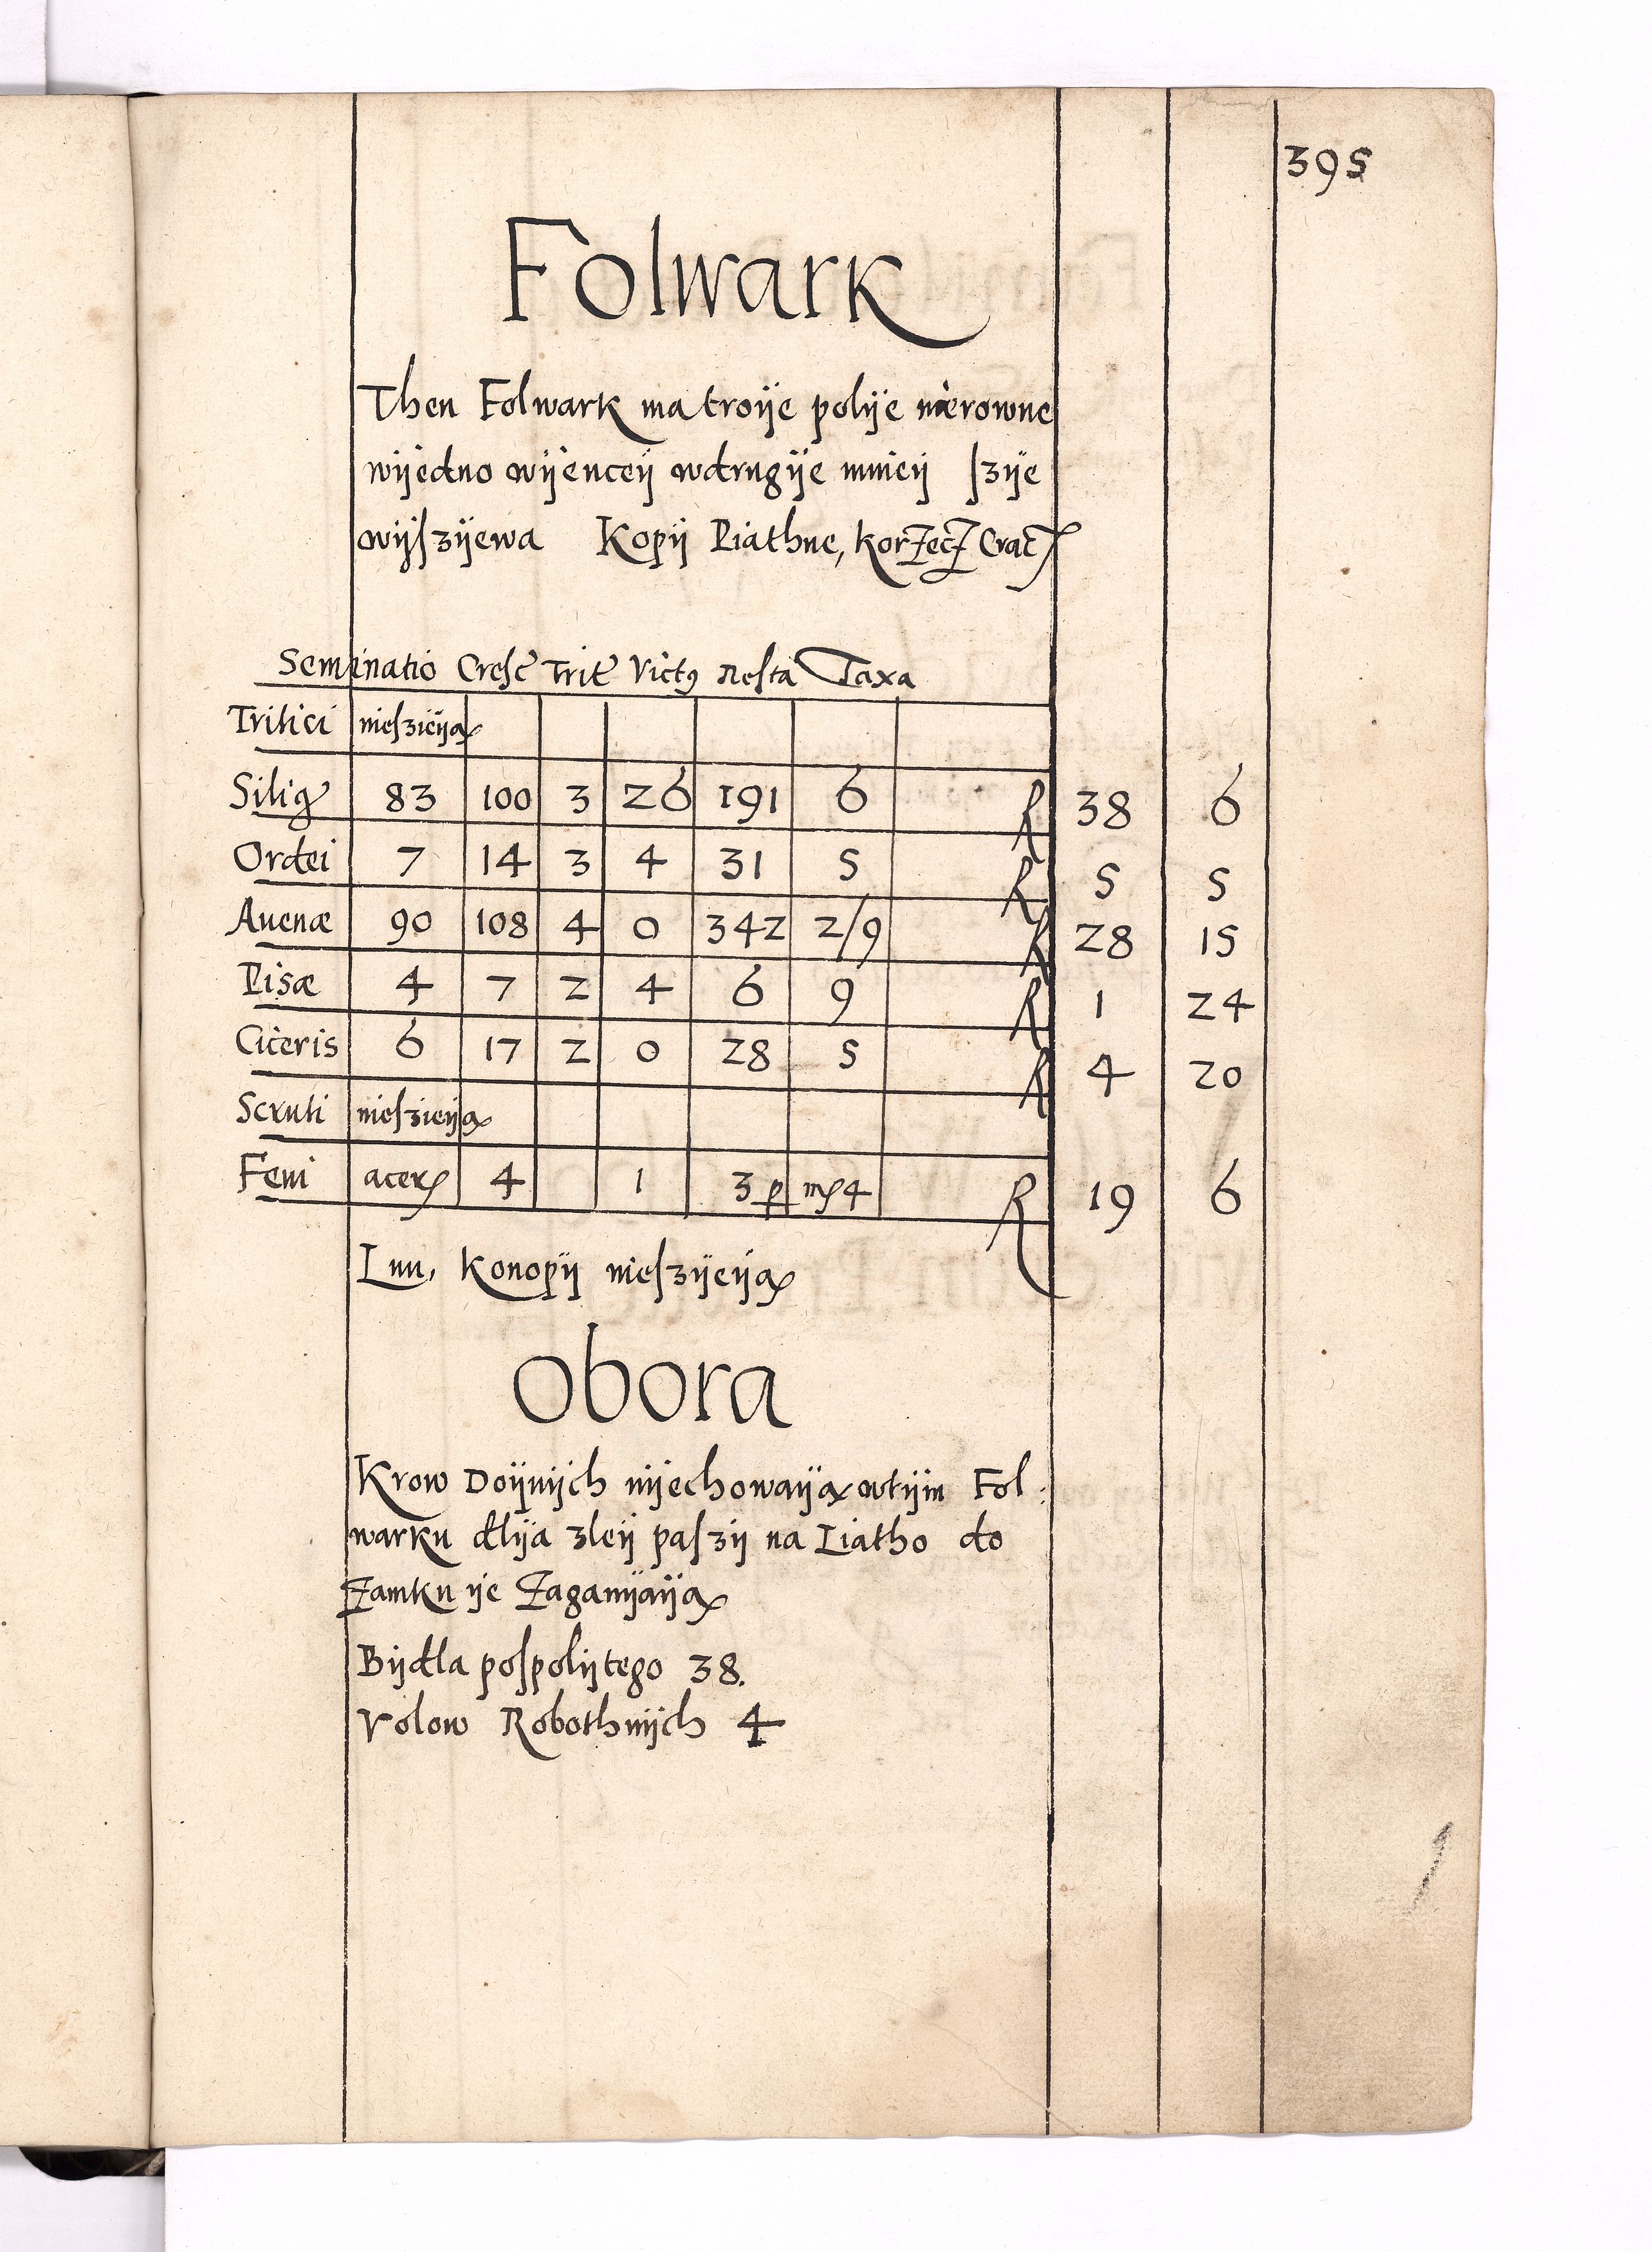 395
Folwark
Then Folwark ma troÿe polÿe nierowne
wÿedno wÿenceÿ wdrugÿe mnieÿ ſzÿe
wÿſzÿewa Kopÿ Piathne, korzecz Crac
Seminatio Creſc Trit Victꝰ Reſta Taxa
Tritici nieſzieÿą
Silig 83 100 3 26 191 6 R 38 6
Ordei 7 14 3 4 31 5 R 5 5
Auenæ 90 108 4 0 342 2/9 R 28 15
Pisæ 4 7 2 4 6 9 R 1 24
Ciceris 6 17 2 0 28 5 R 4 20
Scruti nieſzieÿą
Feni acer 4 1 3 p 4 R 19 6
Lnu, Konopÿ nieſzÿeÿą
Obora
Krow Doÿnÿch nÿechowaÿą wtÿm Fol:
warku dlÿa zleÿ paſzÿ na Liatho do
zamku ÿe zaganÿaÿą
Bÿdla poſpolÿtego 38.
Volow Robothnÿch 4